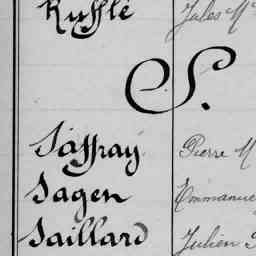 Ruffle Jules M
S.
Saffray Pierre M
Sagen Emmanue
Saillard Julien